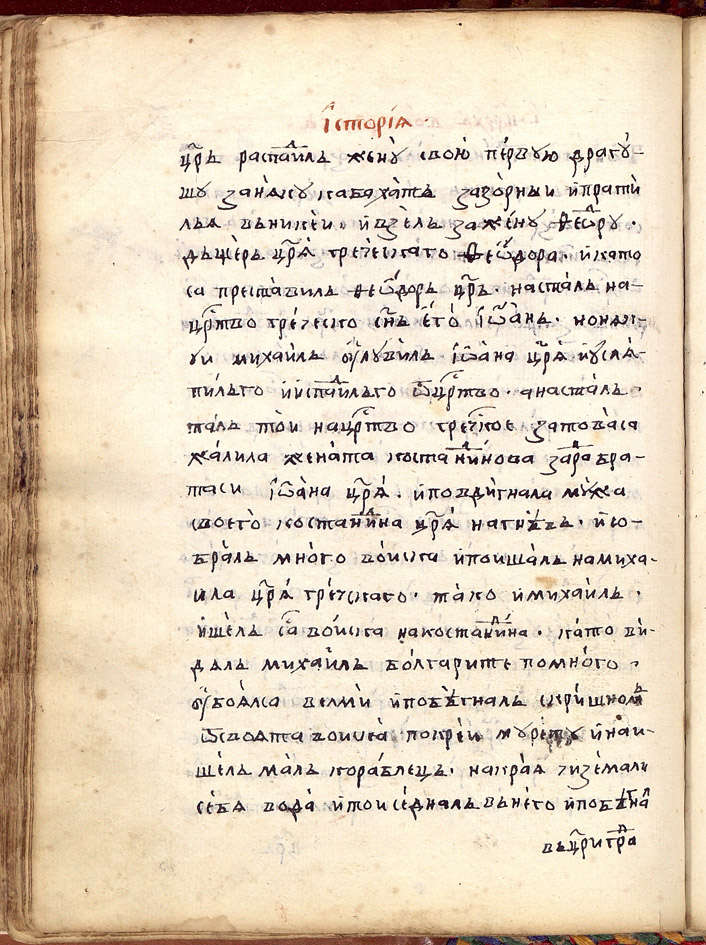 їсторїѧ
цр҃ь распаⷣилъ женꙋ̀ свою̀ пе́рвую драгꙋ́-
шꙋ за нѧ́кꙋ кабаха́тъ зазо́рныи и҆ прати́
лъ ѧ въ никеи. и҆ взе́лъ за жену̀ ѳеѡⷣрꙋ.
дъще́ръ цр҃ѧ̀ гре́ческаго ѳеѡ́дора. и҆ като
са преста́вилъ ѳеѡ́доръ цр҃ь. наста́лъ на
црⷭ҇тво гре́ческо сн҃ъ є҆го̀ і҆ѡа́нъ.
михаи́лъ оу҆лꙋви́лъ і҆ѡа́на цр҃ѧ̀ и҆ ѹслѧ-
пи́лъ го и҆ и҆спаⷣилъ го ѿ црⷭ҇тво. а наста́лъ.
талъ то́и на црⷭ҇тво гре́ческое за това̀ са
жа́лила жена́та костаⷩтинова заради бра-
та си і҆ѡа́на цр҃ѧ̀. и҆ подви́гнала мꙋ́жа
своего̀ костаⷩтина цр҃ѧ̀ на гнѣ́въ. и҆ со-
бра́лъ мно́го во́иска и҆ поиша́лъ на миха-
ила цр҃ѧ̀ гре́ческаго. та́ко и҆ михаи́лъ.
и҆ше́лъ са во́иска на костаⷩтина. ка́то ви́-
дѧлъ михаи́лъ бо́лгарите по мно́го,
оу҆боѧ́лса велмѝ и҆ побѣ́гналъ скри́шномъ
ѿ своѧ́та воиска̀ покре́и мꙋре́тꙋ и҆ наи-
ше́лъ ма́лъ корабле́цъ. на кра́ѧ
се́бѧ вода̀ и҆ то́и се́дналъ въ не́го и҆ побѣ́гна
въ цр҃игра